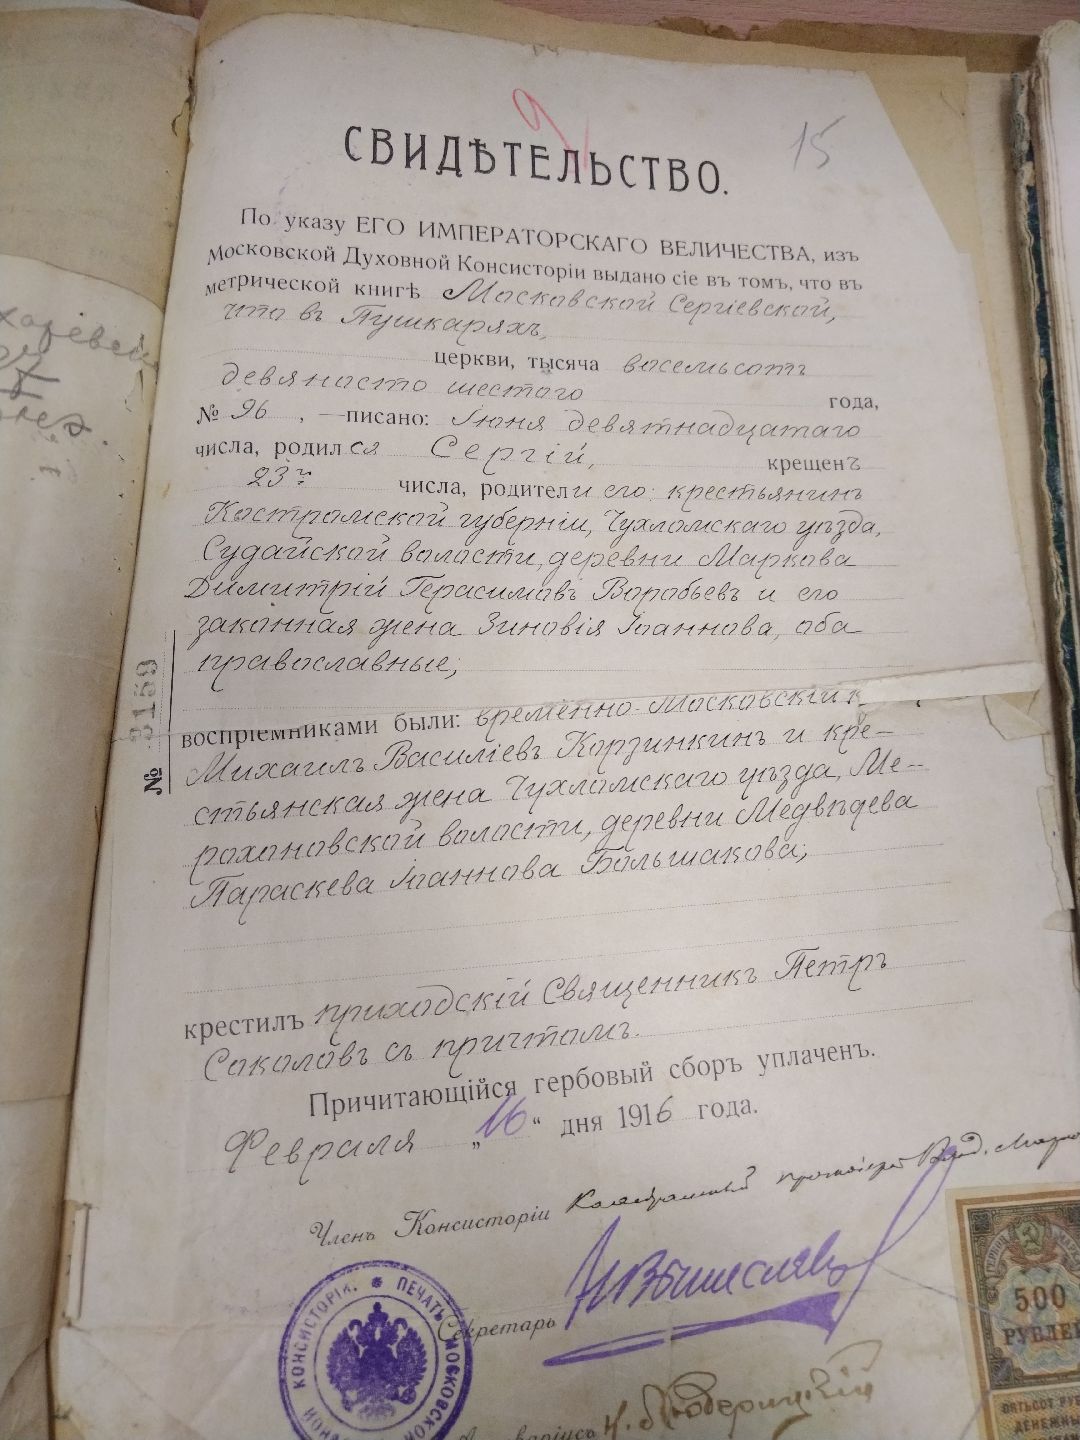 9
15
СВИДѢТЕЛЬСТВО.
По указу ЕГО ИМПЕРАТОРСКАГО ВЕЛИЧЕСТВА, изъ
Московской Духовной Консисторіи выдано сіе въ томъ, что въ
метрической книгѣ Московской Сергіевской,
что въ Пушкаряхъ,
церкви, тысяча восемьсотъ
девяносто шестого года,
№ 96, —писано: Іюня девятнадцатаго
числа, родился Сергій, крещенъ
23го числа, родители его: крестьянинъ
Костромской губерніи, Чухломскаго уѣзда,
Судайской волости, деревни Маркова
Димитрій Герасимовъ Воробьевъ и его
законная жена Зиновія Іоаннова, оба
православные;
№ 3159
воспріемниками были: временно-Московскій к
Михаилъ Василіевъ Корзинкинъ и кре-
стьянская жена Чухломскаго уѣзда, Ме-
рохановской волости, деревни Медвѣдева
Параскева Іоаннова Большакова;
крестилъ приходскій Священникъ Петръ
Соколовъ съ причтомъ.
Причитающійся гербовый сборъ уплаченъ.
Февраля „16“ дня 1916 года.
Членъ Консисторіи протоіерей Влад.
Секретарь Вышеславцев
ПЕЧАТЬ МОСКОВСКОЙ КОНСИСТОРІИ.
500
РУБЛЕЙ
ПЯТЬСОТ РУБ
ДЕНЕЖНЫ